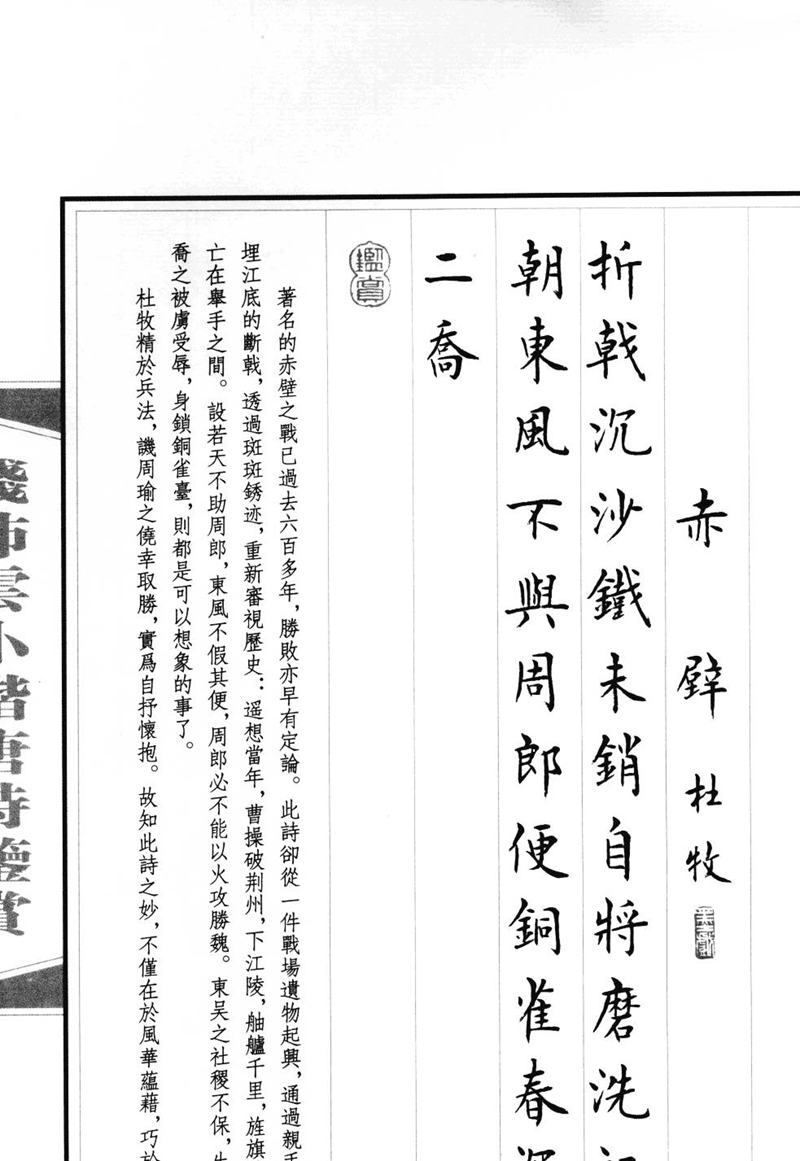 赤壁 杜牧
折戟沉沙鐵未銷自將磨洗
朝東風不與周郎便銅雀春
二喬
鑑賞
著名的赤壁之戰已過去六百多年，勝敗亦早有定論。此詩卻從一件戰場遺物起興，通過親手
埋江底的斷戟，透過斑斑銹迹，重新審視歷史：遥想當年，曹操破荆州，下江陵，舳艫千里，旌旗
亡在舉手之間。設若天不助周郎，東風不假其便，周郎必不能以火攻勝魏。東吴之社稷不保，
喬之被虜受辱，身鎖銅雀臺，則都是可以想象的事了。
杜牧精於兵法，譏周瑜之僥幸取勝，實爲自抒懷抱。故知此詩之妙，不僅在於風華蘊藉，巧於
錢沛雲小楷唐詩鑒賞